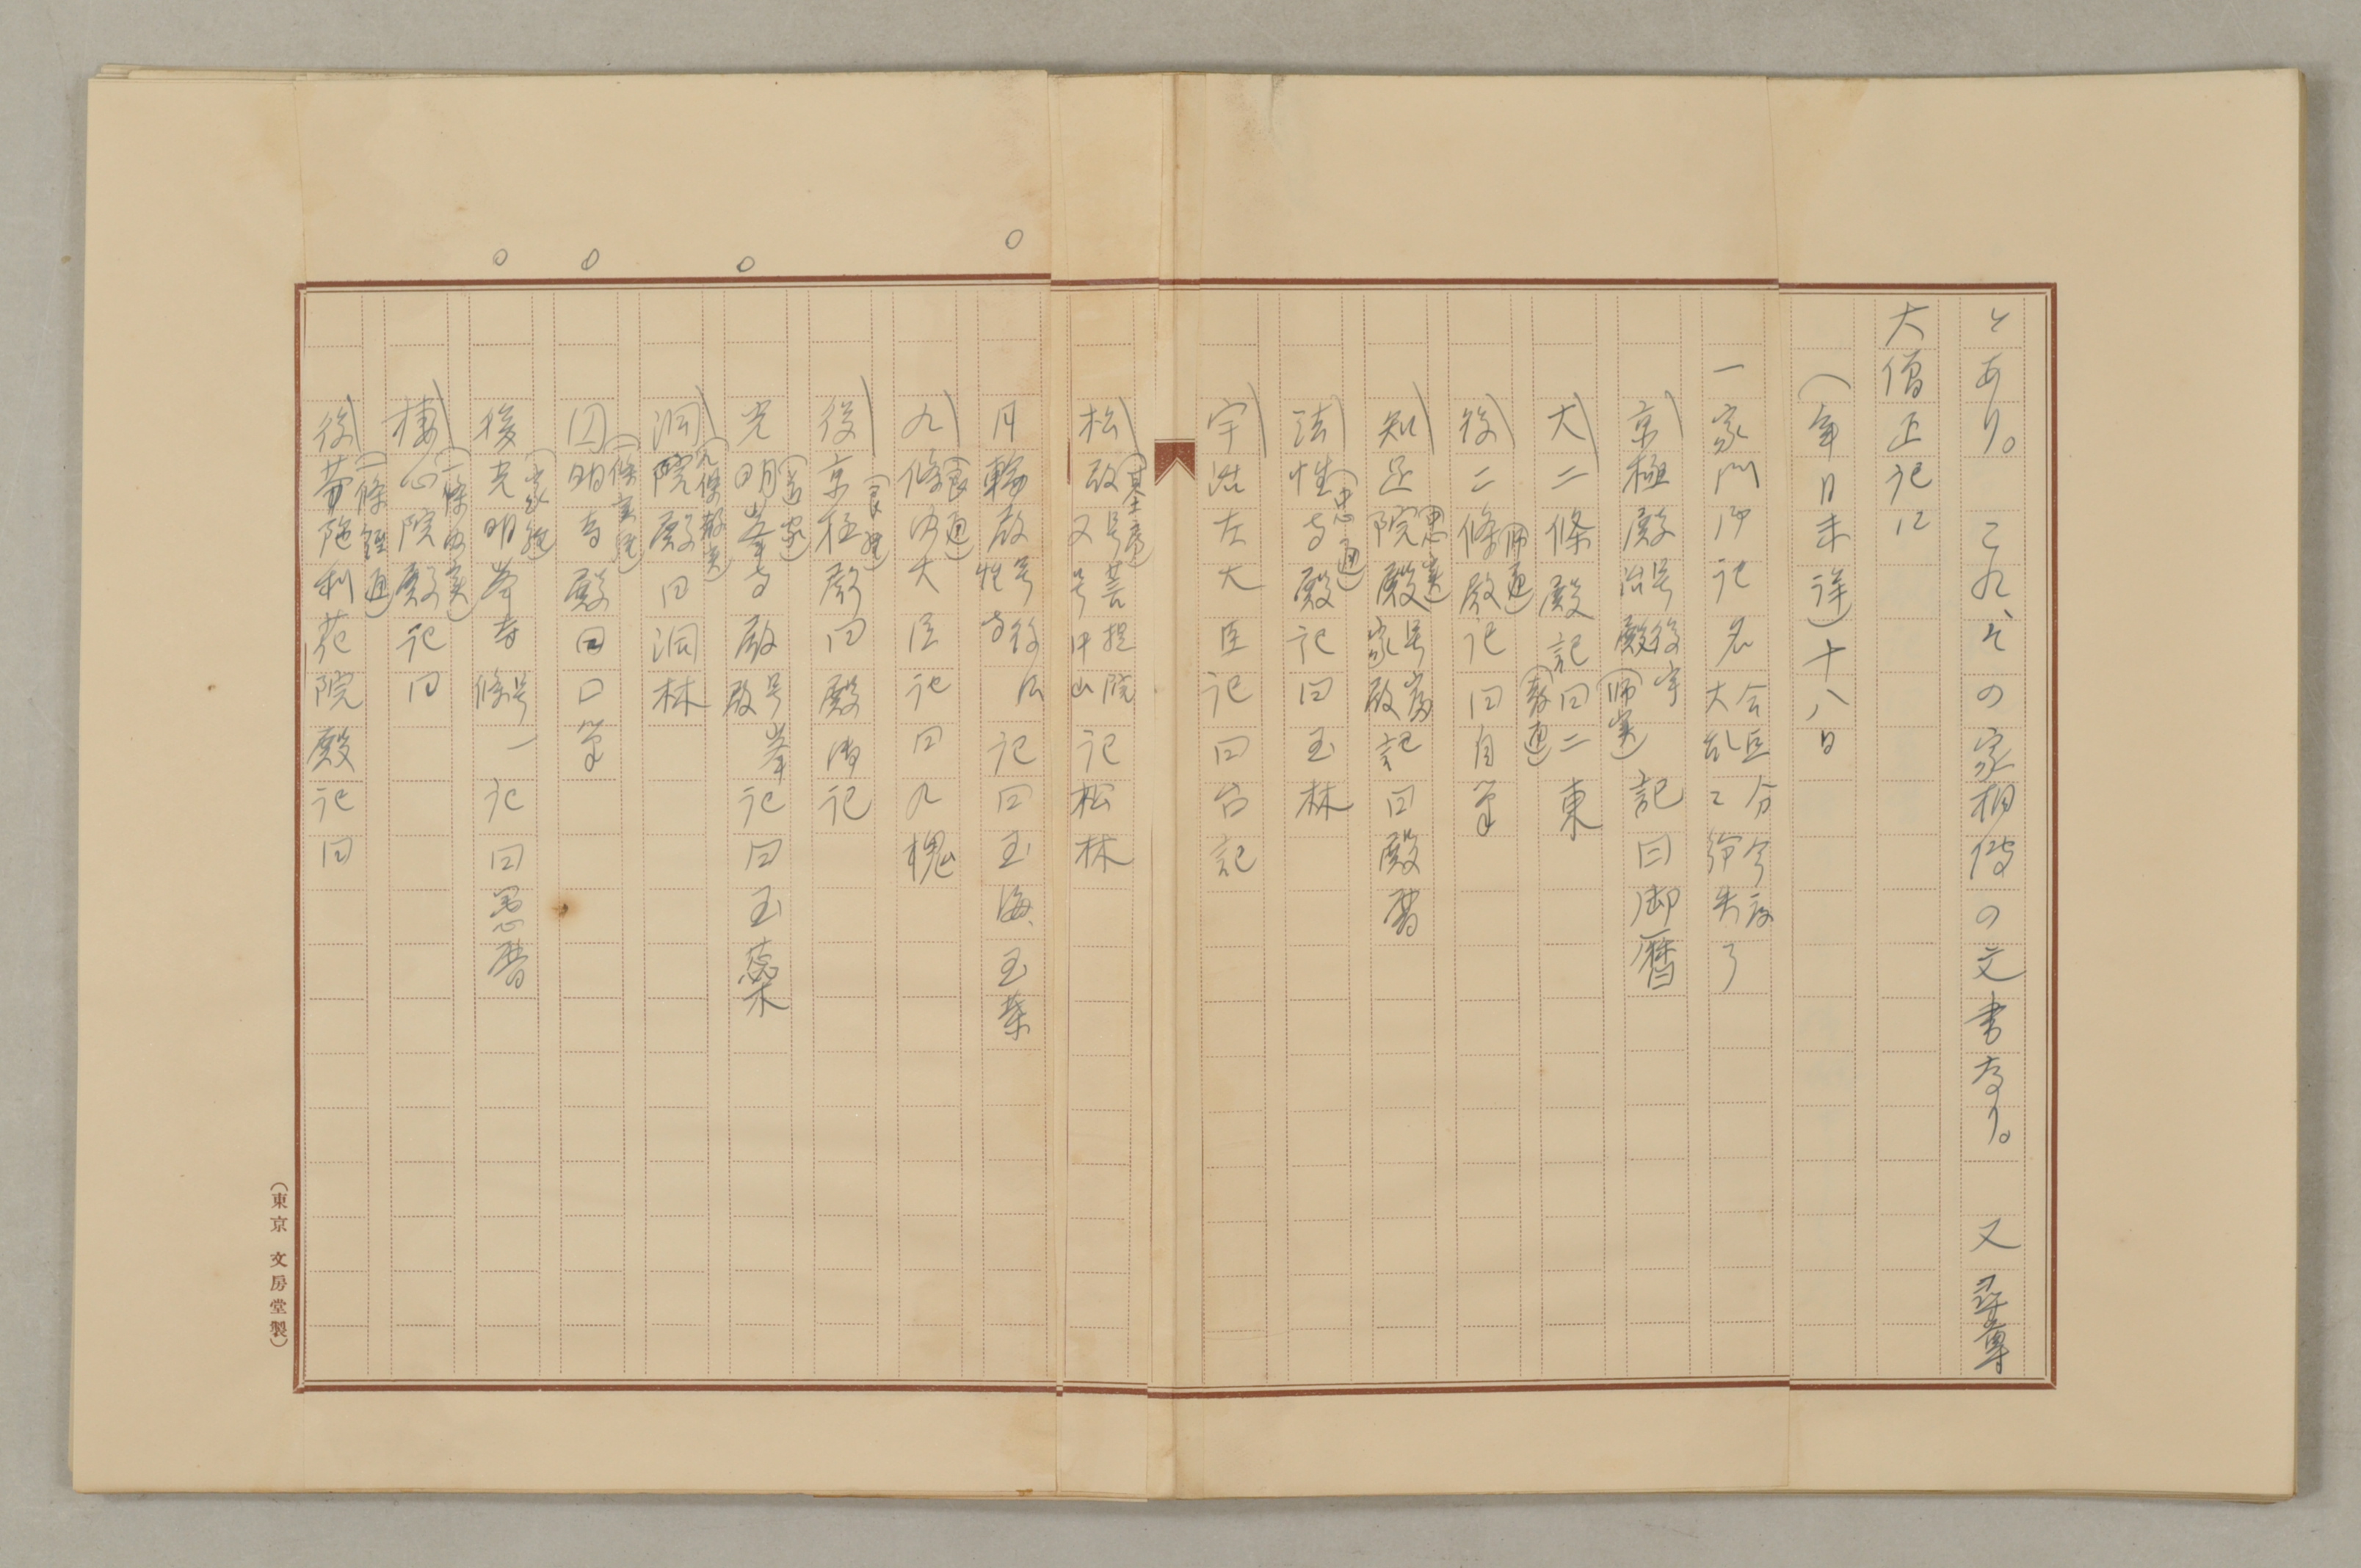 とあり。これ、その家相傳の文書なり。又尋尊
大僧正記に
(年月未詳)十八日
一家門御記名 合五合今度大乱ニ紛失了
京極殿 号後宇治殿(師実) 記曰御暦
大二條殿記曰二東(教通)
後二條殿(師通)記曰自筆
知足院殿(忠実) 号富家殿 記曰殿暦
法性寺殿(忠通)記曰玉林
宇治左大臣記曰台記
松殿(基房) 号菩提院又号中山 記松林
月輪殿 号後法性寺 記曰玉海、玉葉
九條内大臣(良通)記曰九槐
後京極殿(良経)曰殿御記
光明峯寺殿(道家) 号峯殿 記曰玉蘂
洞院殿(九條教実)曰洞林
円明寺殿(一條実経)曰口筆
後光明峯寺(家経) 号一條 記曰愚暦
棲心院殿(一條内実)記曰
後芬陀利花院殿(一條経通)記曰
(東京 文房堂製)